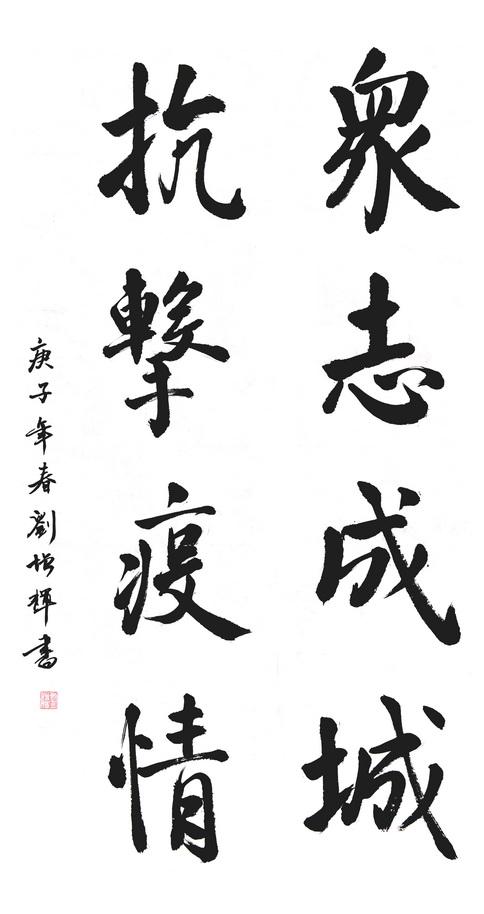 衆志成城
抗擊疫情
庚子年春劉増輝書